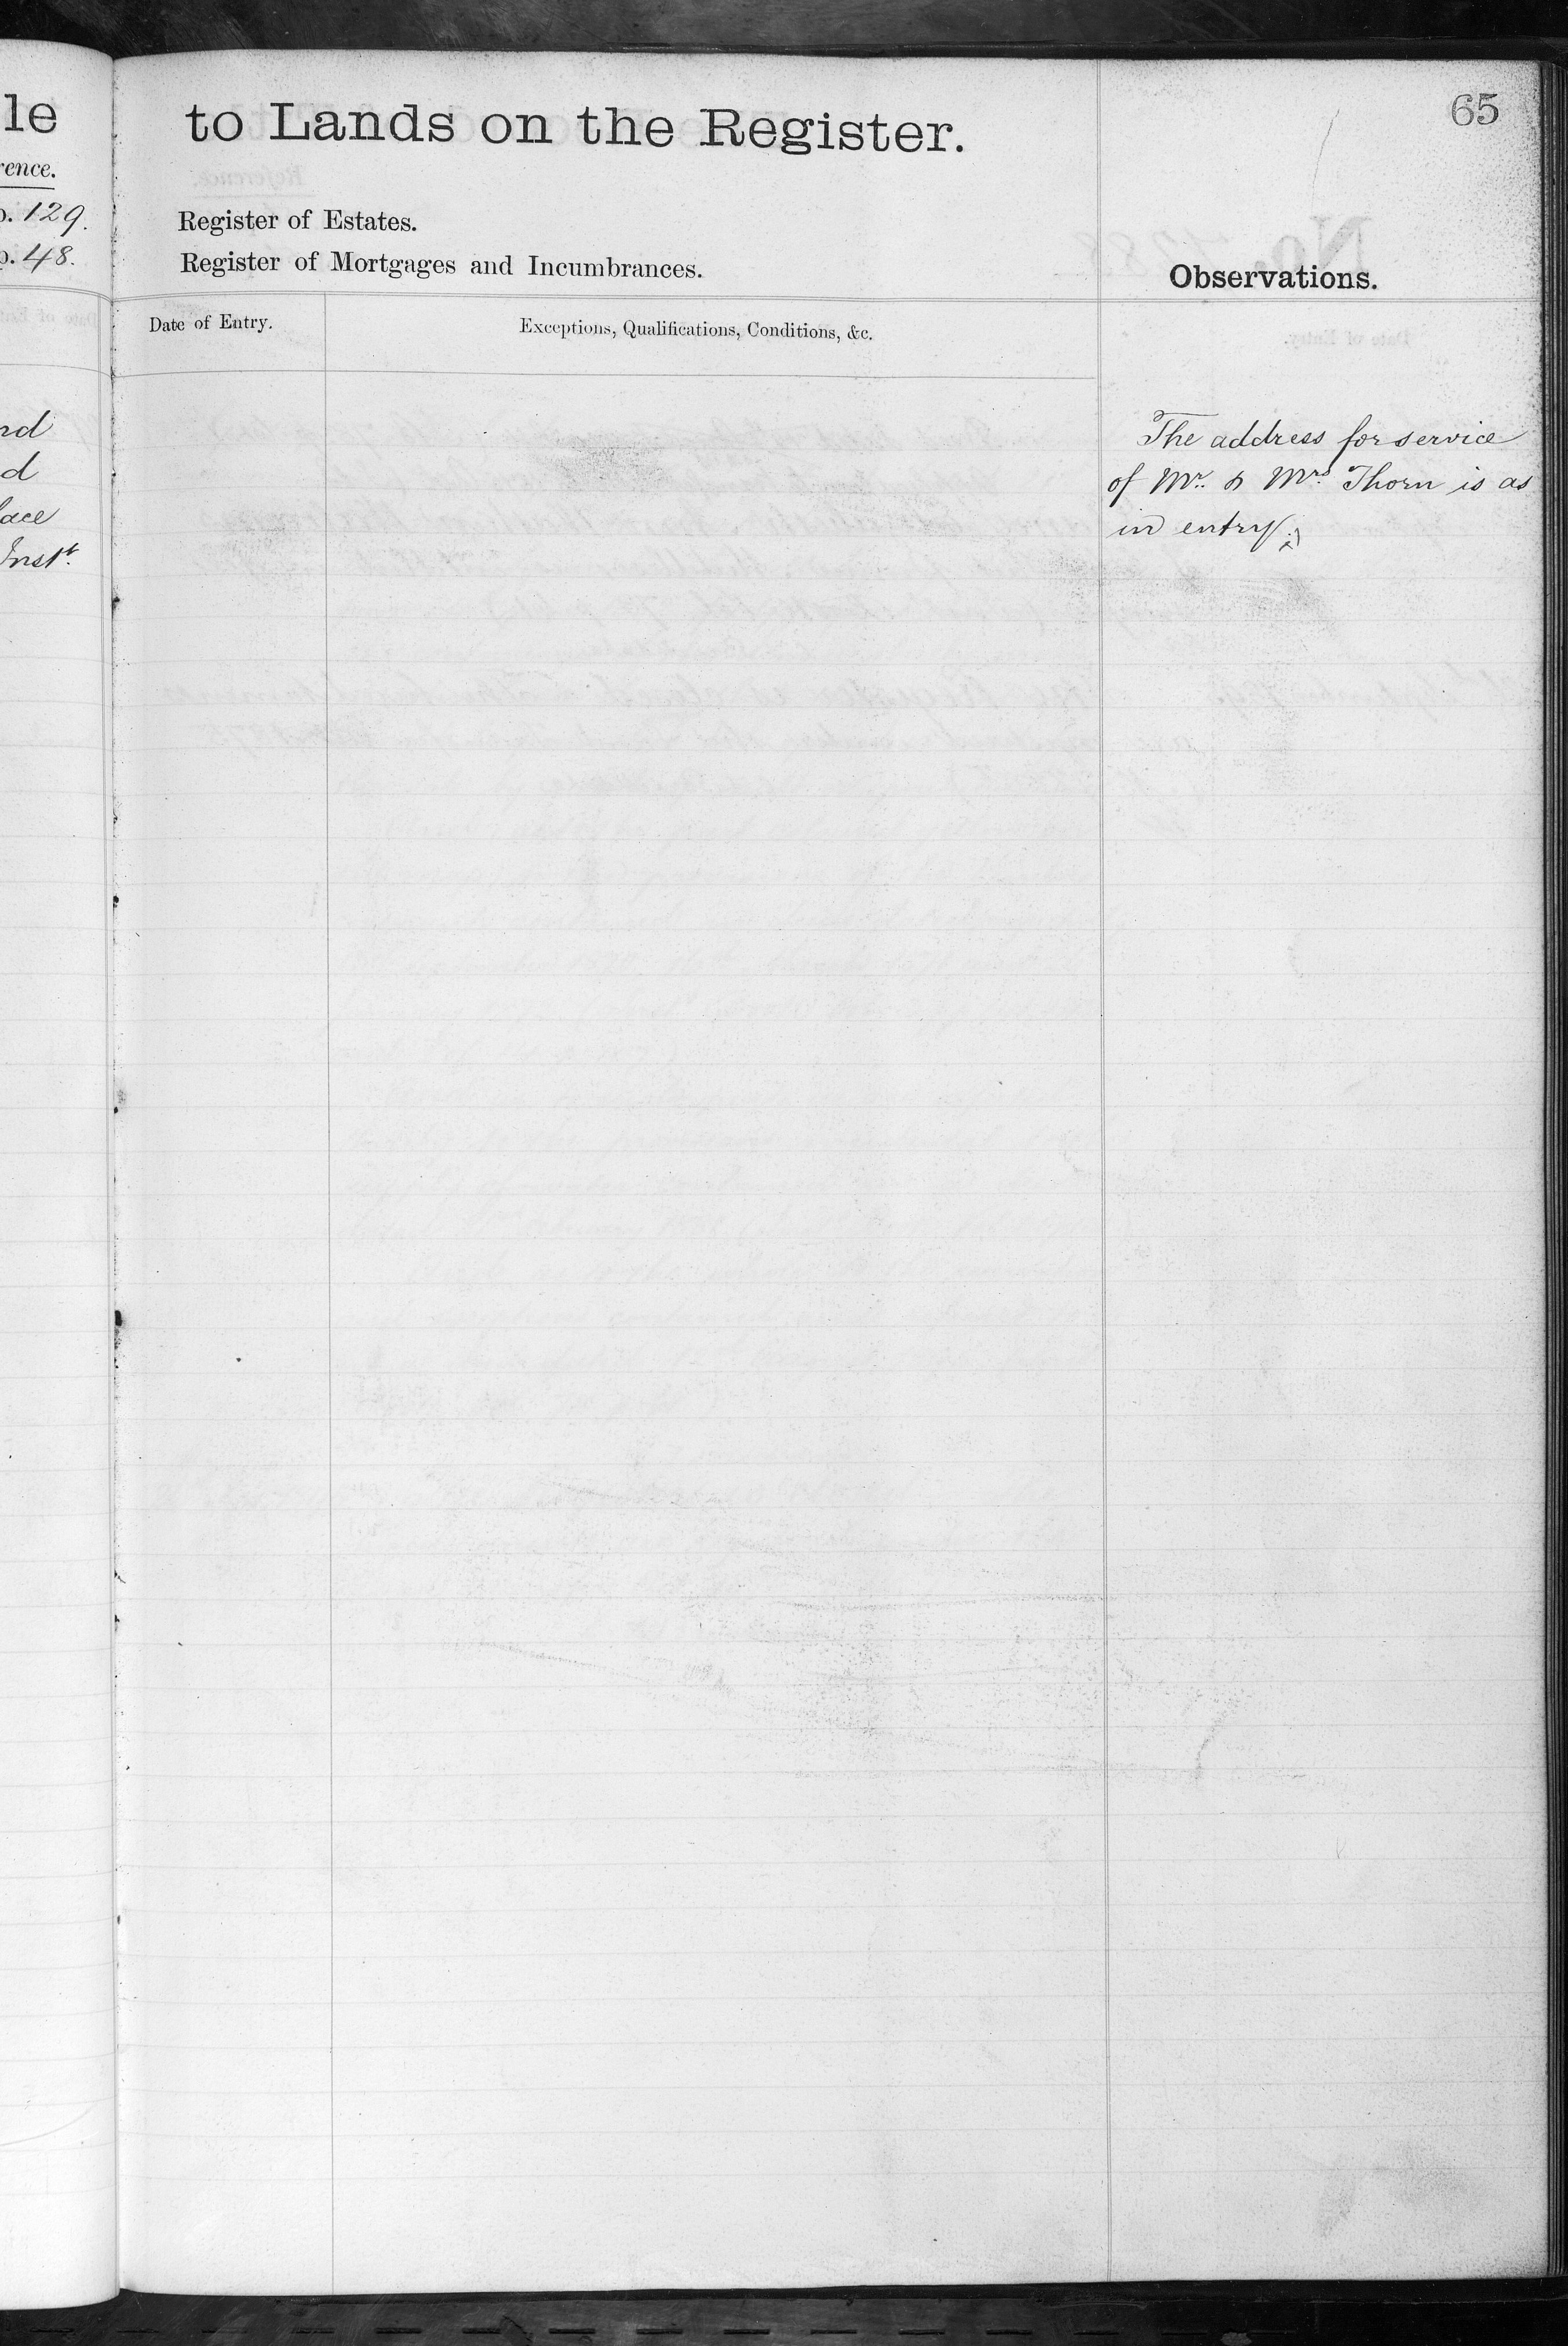 le
rence.
p. 129.
p. 48.
nd
d
lace
Inst.
65
to Lands on the Register.
Register of Estates.
Register of Mortgages and Incumbrances.
Observations.
Date of Entry.
Exceptions, Qualifications, Conditions, &c.
The address for service
of Mr. & Mrs. Thorn is as
in entry.